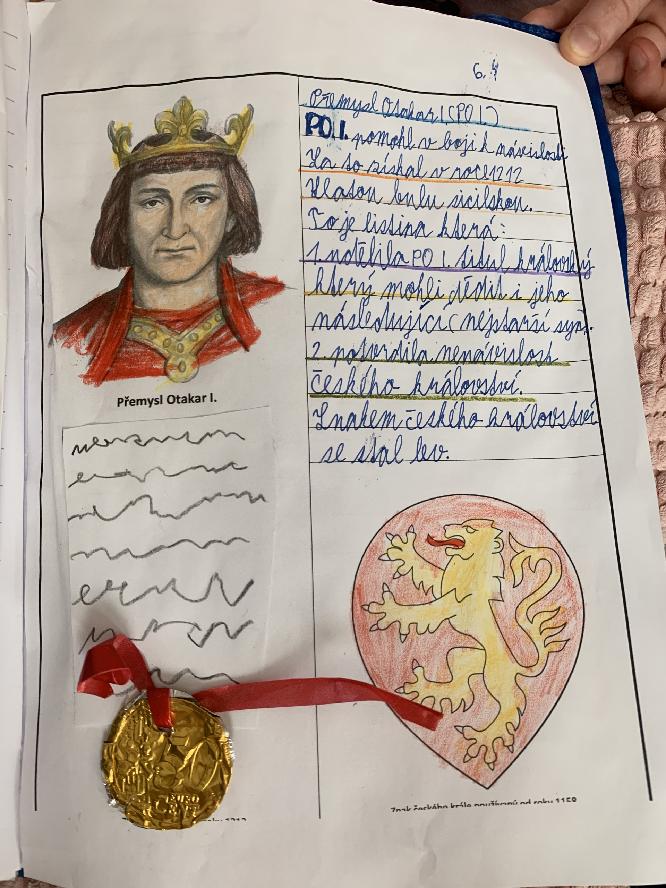 6. 4
Přemysl Otakar I (PO I)
PO I. pomohl v boji k návislosti
Za to získal v roce 1212
Zlatou bulu sicilskou.
To je listina která:
1. udělila PO I. titul královský
který mohli dědit i jeho
následující (nejstarší syn).
2. potvrdila nenávislost
českého království.
Znakem českého království
se stal lev.
Přemysl Otakar I.
Znak českého krále používaný od roku 1158
roku 1212